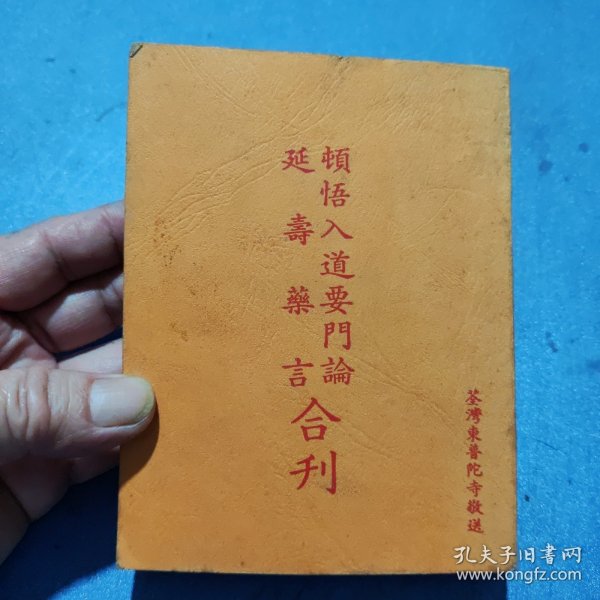 頓悟入道要門論
延壽藥言
合刊
荃灣東普陀寺敬送
孔夫子旧書网
www.kongfz.com